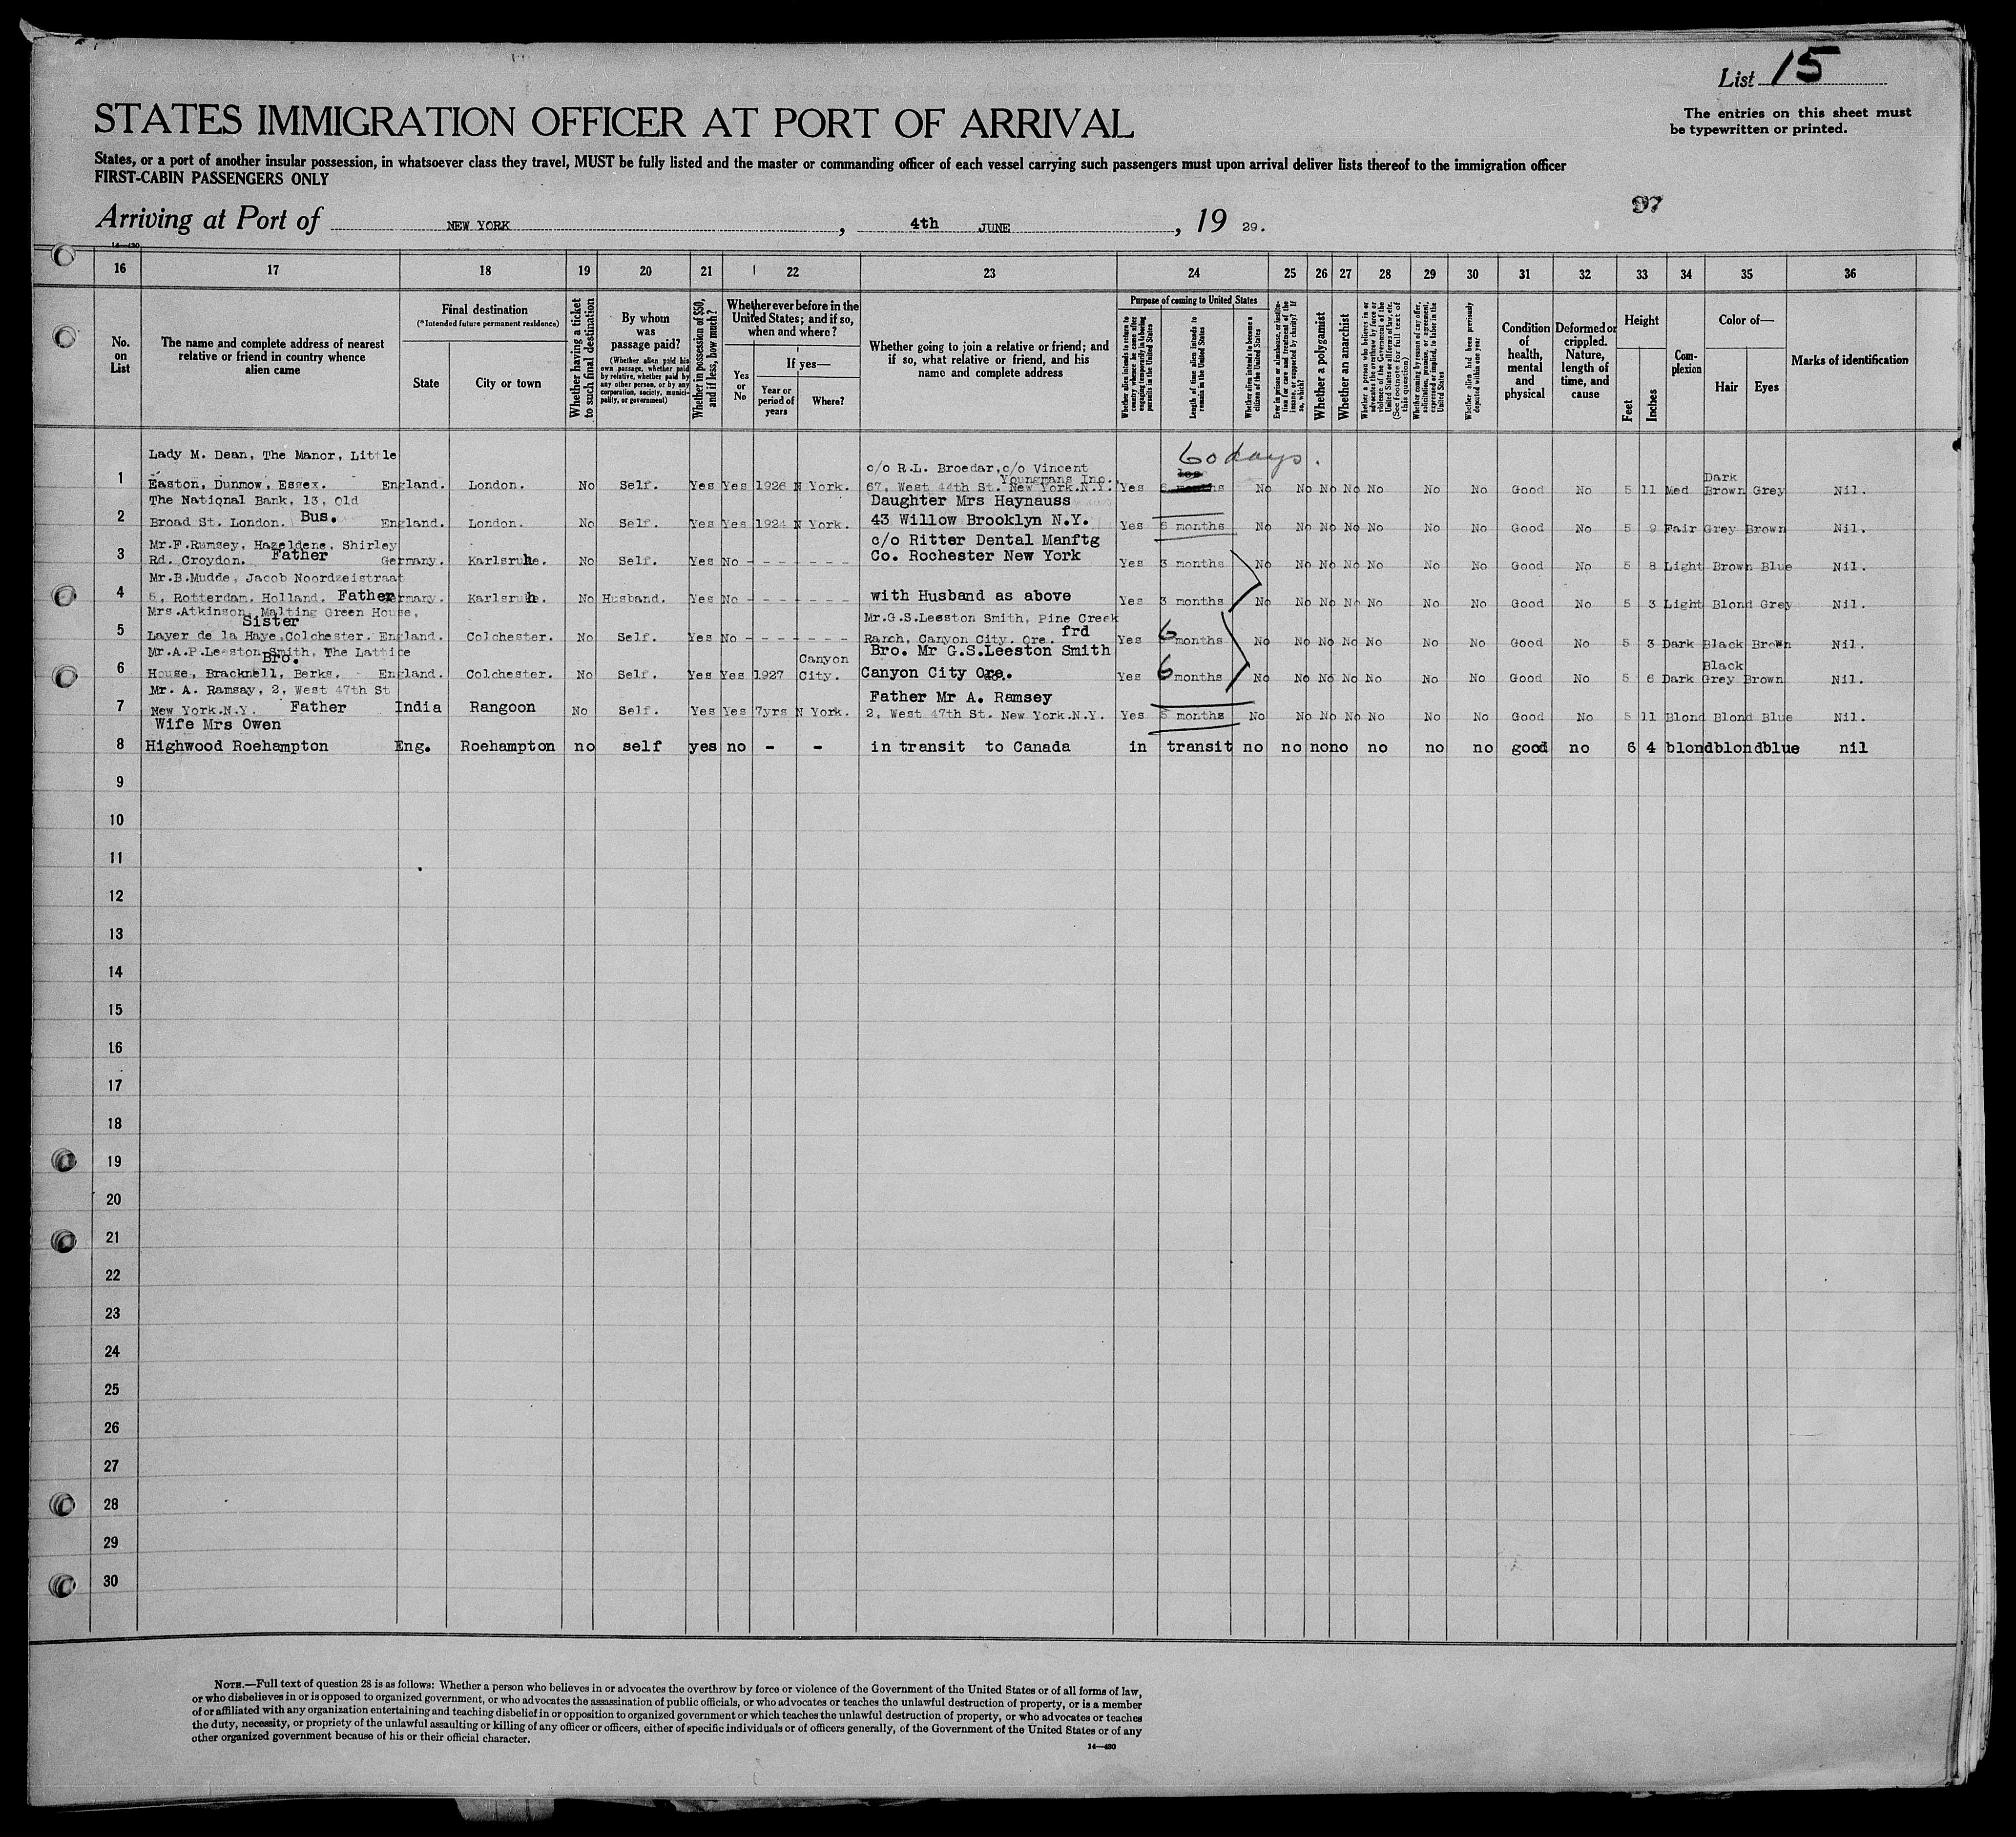 List 15
STATES IMMIGRATION OFFICER AT PORT OF ARRIVAL
The entries on this sheet must
be typewritten or printed.
States, or a port of another insular possession, in whatsoever class they travel, MUST be fully listed and the master or commanding officer of each vessel carrying such passengers must upon arrival deliver lists thereof to the immigration officer
FIRST-CABIN PASSENGERS ONLY
Arriving at Port of NEW YORK, 4th JUNE, 19 29.
97
14—430
16 17 18 19 20 21 22 23 24 25 26 27 28 29 30 31 32 33 34 35 36
No. on List
The name and complete address of nearest relative or friend in country whence alien came
Final destination
(*Intended future permanent residence)
State
City or town
Whether having a ticket to such final destination
By whom was passage paid?
(Whether alien paid his own passage, whether paid by relative, whether paid by any other person, or by any corporation, society, municipality, or government)
Whether in possession of $50, and if less, how much?
Whether ever before in the United States; and if so, when and where?
Yes or No
If yes—
Year or period of years
Where?
Whether going to join a relative or friend; and if so, what relative or friend, and his name and complete address
Purpose of coming to United States
Whether alien intends to return to country whence he came after engaging temporarily in laboring pursuits in the United States
Length of time alien intends to remain in the United States
Whether alien intends to become a citizen of the United States
Ever in prison or almshouse, or institution for care and treatment of the insane, or supported by charity? If so, which?
Whether a polygamist
Whether an anarchist
Whether a person who believes in or advocates the overthrow by force or violence of the Government of the United States or all forms of law, etc. (See footnote for full text of this question)
Whether coming by reason of any offer, solicitation, promise, or agreement, expressed or implied, to labor in the United States
Whether alien had been previously deported within one year
Condition of health, mental and physical
Deformed or crippled. Nature, length of time, and cause
Height
Feet
Inches
Complexion
Color of—
Hair
Eyes
Marks of identification
60 days.
1 Lady M. Dean, The Manor, Little
Easton, Dunmow, Essex. England. London. No Self. Yes Yes 1926 N York. c/o R.L. Broedar, c/o Vincent Youngmans Inc. 67, West 44th St. New York.N.Y. Yes months No No No No No No No Good No 5 11 Med Dark Brown Grey Nil.
2 The National Bank, 13, Old
Broad St. London. Bus. England. London. No Self. Yes Yes 1924 N York. Daughter Mrs Haynauss 43 Willow Brooklyn N.Y. Yes 6 months No No No No No No No Good No 5 9 Fair Grey Brown Nil.
3 Mr.F.Rumsey, Hazeldene, Shirley
Rd. Croydon. Father Germany. Karlsruhe. No Self. Yes No - - - - - - c/o Ritter Dental Manftg Co. Rochester New York Yes 3 months No No No No No No No Good No 5 8 Light Brown Blue Nil.
4 Mr.B.Mudde, Jacob Noordzeistraat
5, Rotterdam. Holland. Father Germany. Karlsruhe. No Husband. Yes No - - - - - - with Husband as above Yes 3 months No No No No No No No Good No 5 3 Light Blond Grey Nil.
5 Mrs.Atkinson, Malting Green House,
Sister
Layer de la Haye,Colchester. England. Colchester. No Self. Yes No - - - - - - Mr.G.S.Leeston Smith, Pine Creek Ranch, Canyon City. Ore. frd Yes 6 months No No No No No No No Good No 5 3 Dark Black Brown Nil.
6 Mr.A.P.Leeston Smith, The Lattice
Bro.
House, Bracknell, Berks. England. Colchester. No Self. Yes Yes 1927 Canyon City. Bro. Mr G.S.Leeston Smith Canyon City Ore. Yes 6 months No No No No No No No Good No 5 6 Dark Black Grey Brown Nil.
7 Mr. A. Ramsay, 2, West 47th St
New York.N.Y. Father India Rangoon No Self. Yes Yes 7yrs N York. Father Mr A. Ramsey 2, West 47th St. New York.N.Y. Yes 6 months No No No No No No No Good No 5 11 Blond Blond Blue Nil.
8 Wife Mrs Owen
Highwood Roehampton Eng. Roehampton no self yes no - - in transit to Canada in transit no no no no no no no good no 6 4 blond blond blue nil
9
10
11
12
13
14
15
16
17
18
19
20
21
22
23
24
25
26
27
28
29
30
NOTE.—Full text of question 28 is as follows: Whether a person who believes in or advocates the overthrow by force or violence of the Government of the United States or of all forms of law,
or who disbelieves in or is opposed to organized government, or who advocates the assassination of public officials, or who advocates or teaches the unlawful destruction of property, or is a member
of or affiliated with any organization entertaining and teaching disbelief in or opposition to organized government or which teaches the unlawful destruction of property, or who advocates or teaches
the duty, necessity, or propriety of the unlawful assaulting or killing of any officer or officers, either of specific individuals or of officers generally, of the Government of the United States or of any
other organized government because of his or their official character.
14—430